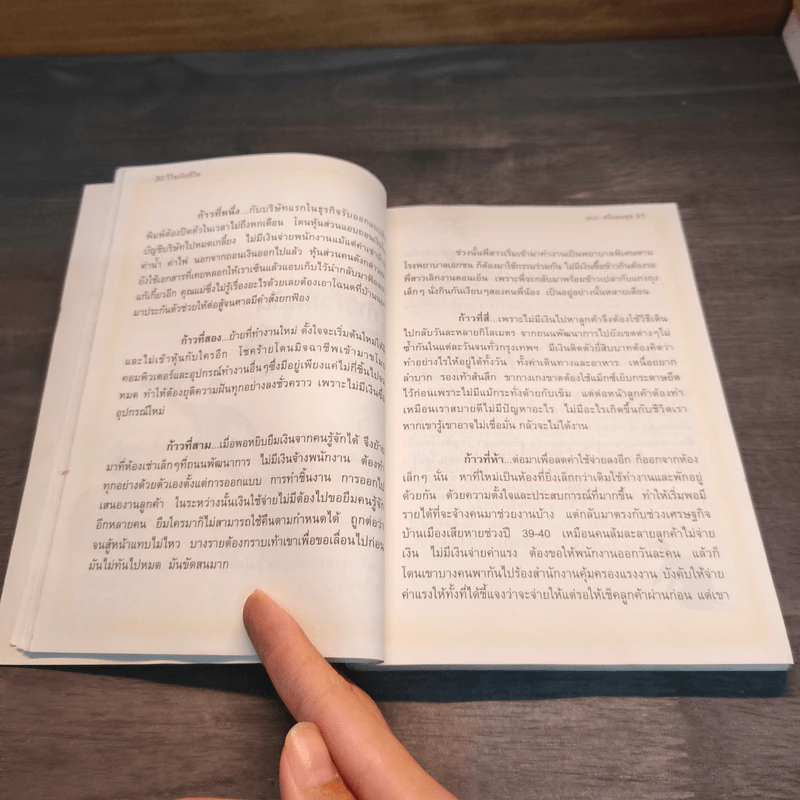 30 รีไซเคิลชีวิต
ก้าวที่หนึ่ง...กับบริษัทแรกในธุรกิจรับออกแบบสิ่ง
พิมพ์ต้องปิดตัวในเวลาไม่ถึงหกเดือน โดนหุ้นส่วนแอบถอนเงินใน
บัญชีบริษัทไปหมดเกลี้ยง ไม่มีเงินจ่ายพนักงานแม้แต่ค่าเช่า
ค่าน้ำ ค่าไฟ นอกจากถอนเงินออกไปแล้ว หุ้นส่วนคนดังกล่าว
ยังใช้เอกสารที่เคยหลอกให้เราเซ็นแล้วแอบเก็บไว้นำกลับมาฟ้อง
แก้เกี้ยวอีก คุณแม่ซึ่งไม่รู้เรื่องอะไรด้วยเลยต้องเอาโฉนดที่บ้าน
มาประกันตัวช่วยให้ต่อสู้จนศาลมีคำสั่งยกฟ้อง
ก้าวที่สอง...ย้ายที่ทำงานใหม่ ตั้งใจจะเริ่มต้นใหม่ให้
และไม่เข้าหุ้นกับใครอีก โชคร้ายโดนมิจฉาชีพเข้ามาขโมย
คอมพิวเตอร์และอุปกรณ์ทำงานอื่นๆซึ่งมีอยู่เพียงแค่ไม่กี่ชิ้นไปจน
หมด ทำให้ต้องยุติความฝันทุกอย่างลงชั่วคราว เพราะไม่มีเงินซื้อ
อุปกรณ์ใหม่
ก้าวที่สาม...เมื่อพอหยิบยืมเงินจากคนรู้จักได้ จึงย้าย
มาที่ห้องเช่าเล็กๆที่ถนนพัฒนาการ ไม่มีเงินจ้างพนักงาน ต้องทำ
ทุกอย่างด้วยตัวเองตั้งแต่การออกแบบ การทำชิ้นงาน การออกไป
เสนองานลูกค้า ในระหว่างนั้นเงินใช้จ่ายไม่มีต้องไปขอยืมคนรู้จัก
อีกหลายคน ยืมใครมาก็ไม่สามารถใช้คืนตามกำหนดได้ ถูกต่อว่า
จนสู้หน้าแทบไม่ไหว บางรายต้องกราบเท้าเขาเพื่อขอเลื่อนไปก่อน
มันไม่ทันไปหมด มันขัดสนมาก
ช่วงนั้นพี่สาวเริ่มเข้ามาทำงานเป็นพยาบาลพิเศษตาม
โรงพยาบาลเอกชน ก็ต้องมาใช้กรรมร่วมกัน ไม่มีเงินซื้อข้าวกินต้องรอ
พี่สาวเลิกงานตอนเย็น เพราะพี่จะกลับมาพร้อมข้าวเปล่ากับแกงถุง
เล็กๆ นั่งกินกันเงียบๆสองคนพี่น้อง เป็นอยู่อย่างนั้นหลายเดือน
ก้าวที่สี่...เพราะไม่มีเงินไปหาลูกค้าจึงต้องใช้วิธีเดิน
ไปกลับวันละหลายกิโลเมตร จากถนนพัฒนาการไปยังเขตต่างๆไม่
ซ้ำกันในแต่ละวันจนทั่วกรุงเทพฯ มีเงินติดตัวยี่สิบบาทต้องคิดว่า
ทำอย่างไรให้อยู่ได้ทั้งวัน ทั้งค่าเดินทางและอาหาร เหนื่อยยาก
ลำบาก รองเท้าส้นสึก ขากางเกงขาดต้องใช้แม็กซ์เย็บกระดาษยึด
ไว้ก่อนเพราะไม่มีแม้กระทั่งด้ายกับเข็ม แต่ต่อหน้าลูกค้าต้องทำ
เหมือนเราสบายดีไม่มีปัญหาอะไร ไม่มีอะไรเกิดขึ้นกับชีวิตเรา
หากเขารู้เขาอาจไม่เชื่อมั่น กลัวจะไม่ได้งาน
ก้าวที่ห้า...ต่อมาเพื่อลดค่าใช้จ่ายลงอีก ก็ออกจากห้อง
เล็กๆ นั่น หาที่ใหม่เป็นห้องที่ยิ่งเล็กกว่าเดิมใช้ทำงานและพักอยู่
ด้วยกัน ด้วยความตั้งใจและประสบการณ์ที่มากขึ้น ทำให้เริ่มพอมี
รายได้ที่จะจ้างคนมาช่วยงานบ้าง แต่กลับมาตรงกับช่วงเศรษฐกิจ
บ้านเมืองเสียหายช่วงปี 39-40 เหมือนคนล้มละลายลูกค้าไม่จ่าย
เงิน ไม่มีเงินจ่ายค่าแรง ต้องขอให้พนักงานออกวันละคน แล้วก็
โดนเขาบางคนพากันไปร้องสำนักงานคุ้มครองแรงงาน บังคับให้จ่าย
ค่าแรงให้ทั้งที่ได้ชี้แจงว่าจะจ่ายให้แต่รอให้เช็คลูกค้าผ่านก่อน แต่เขา